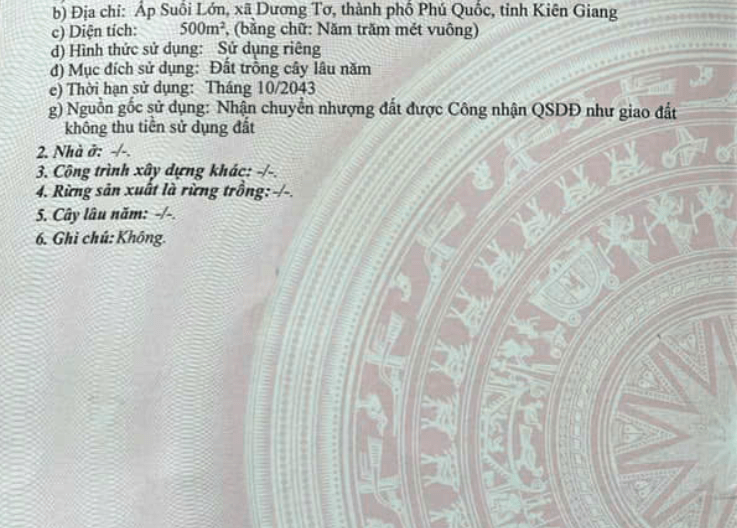 b) Địa chỉ: Ấp Suối Lớn, xã Dương Tơ, thành phố Phú Quốc, tỉnh Kiên Giang
c) Diện tích: 500m², (bằng chữ: Năm trăm mét vuông)
d) Hình thức sử dụng: Sử dụng riêng
đ) Mục đích sử dụng: Đất trồng cây lâu năm
e) Thời hạn sử dụng: Tháng 10/2043
g) Nguồn gốc sử dụng: Nhận chuyển nhượng đất được Công nhận QSDĐ như giao đất
không thu tiền sử dụng đất
2. Nhà ở: -/-.
3. Công trình xây dựng khác: -/-.
4. Rừng sản xuất là rừng trồng: -/-.
5. Cây lâu năm: -/-.
6. Ghi chú: Không.